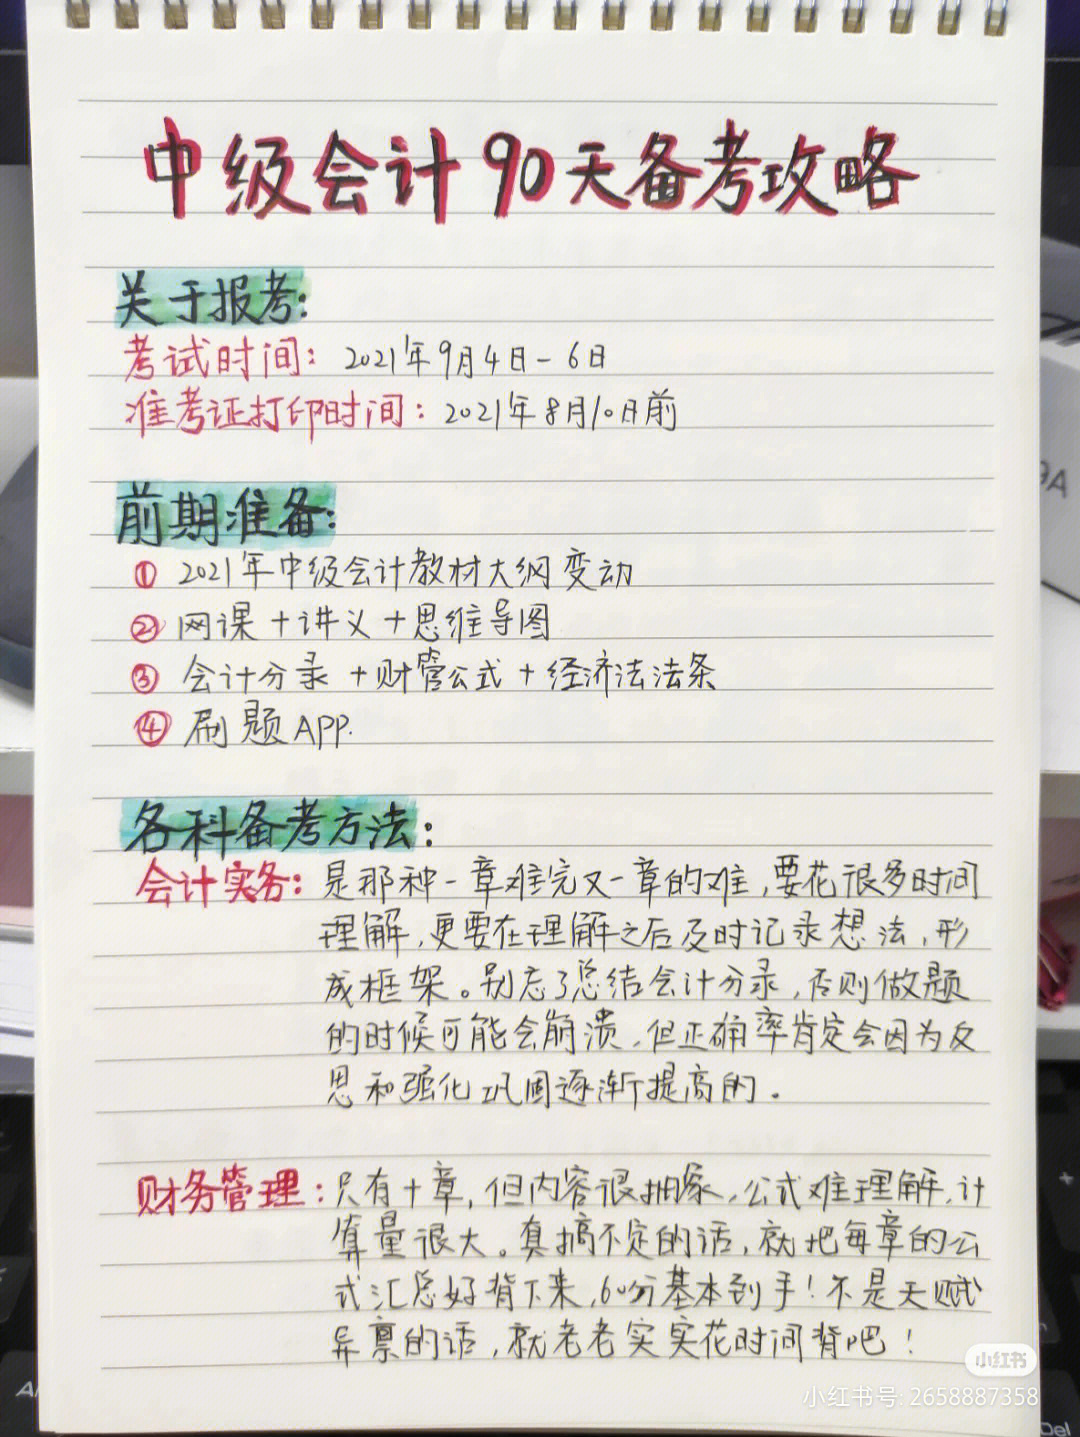 中级会计90天备考攻略
关于报考:
考试时间: 2021年9月4日-6日
准考证打印时间: 2021年8月10日前
前期准备:
① 2021年中级会计教材大纲变动
② 网课+讲义+思维导图
③ 会计分录+财管公式+经济法法条
④ 刷题APP.
各科备考方法:
会计实务: 是那种一章难完又一章的难,要花很多时间
理解,更要在理解之后及时记录想法,形
成框架。别忘了总结会计分录,否则做题
的时候可能会崩溃,但正确率肯定会因为反
思和强化巩固逐渐提高的。
财务管理: 只有十章,但内容很抽象,公式难理解,计
算量很大。真搞不定的话,就把每章的公
式汇总好背下来,60分基本到手!不是天赋
异禀的话,就老老实实花时间背吧!
小红书
小红书号: 2658887358
9A
Del